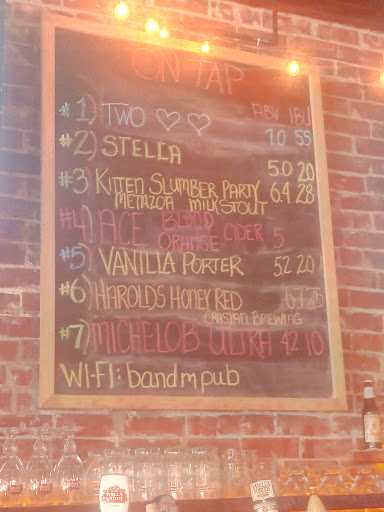 ON TAP
ABV IBU
#1) TWO ♡ ♡ 7.0 55
#2) STELLA 5.0 20
#3 KITTEN SLUMBER PARTY 6.4 28
METAZOA MILK STOUT
#4) ACE BLOOD ORANGE CIDER 5
#5) VANILLA PORTER 5.2 20
#6) HAROLDS HONEY RED 6.7 25
BREWING
#7) MICHELOB ULTRA 4.2 10
WI-FI: bandmpub
STELLA ARTOIS